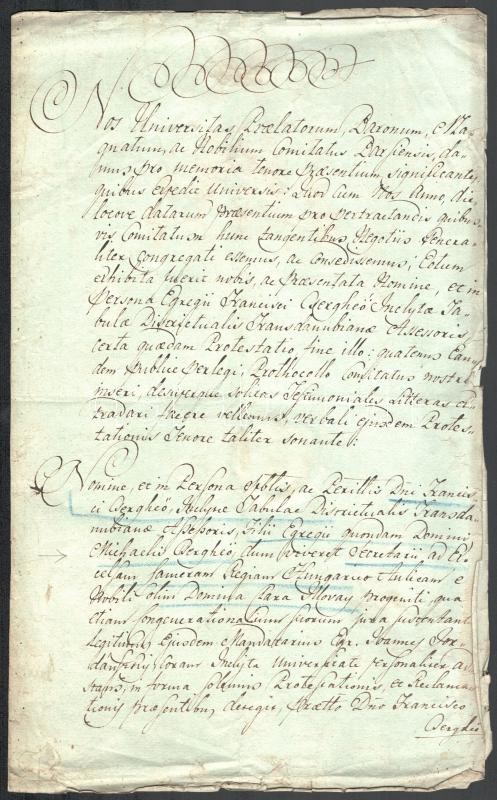 Nos Universitas Prælatorum, Baronum, e Ma-
gnatum, ac Nobilium Comitatus Barsiensis, da-
mus pro memoria tenore Præsentium significantes
quibus expedit Universis: Quod cum Nos Anno, die
locove datarum præsentium pro pertractandis quibus-
vis Comitatum hunc tangentibus Negotiis Genera-
liter congregati essemus, ac consedissemus;
exhibita fuerit nobis, ac præsentata Nomine, et in
Persona Egregii Francisci Csergheö Inclytæ Ta-
bulæ Districtualis Transdanubianæ Assessoris
certa quædam Protestatio fine illo: quatenus Ean-
dem publice perlegi, Prothocollo Comitatus nostri
inseri, desuperque solitas Testimoniales Litteras ex-
tradari facere vellemus, verbali ejusdem Protes-
tationis Tenore taliter sonante:
Nomine, et in Persona Sptlis, ac Perillis Dni Francis-
ci Cserghéö, Inclytæ Tabulæ Districtualis Transda-
nubianæ Assessoris, Filii Egregii quondam Domini
Michaelis Cserghéö, dum viveret Secretarii ad Ex-
celsam Cameram Regiam Hungarico Aulicam e
Nobili olim Domina Clara Movay progeniti, qua
etiam Congenerationalium suorum jura
legitimi, Ejusdem Mandatarius Egr. Joannes
coram Inclyta Universitate personaliter ad-
stans, in forma solennis Protestationis, et Reclama-
tionis præsentibus detegit, Præfto Dno Francisco
Cserghéö